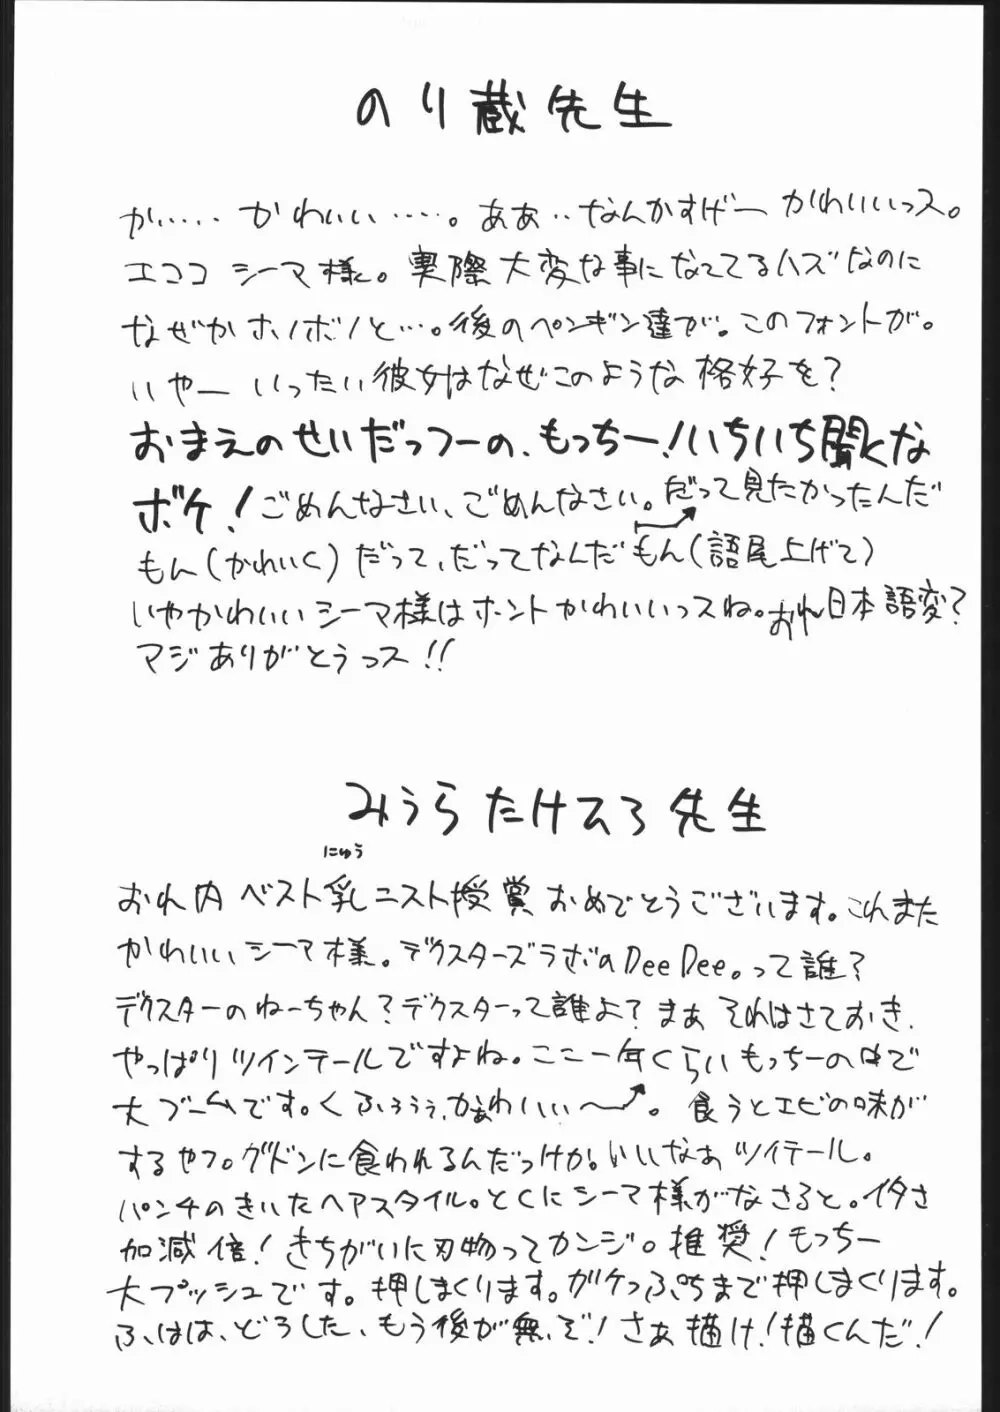 のり蔵先生
か‥‥‥ かわいい‥‥‥。ああ‥なんかすげー かわいいっス。
エココ シーマ様。実際大変な事になってるハズなのに
なぜかホノボノと…。後のペンギン達が。このフォントが。
いやー いったい彼女はなぜこのような格好を?
おまえのせいだっつーの、もっちー!いちいち聞くな
ボケ!ごめんなさい、ごめんなさい。だって見たかったんだ
もん(かわいく)だって、だってなんだもん(語尾上げて)
いやかわいいシーマ様はホントかわいいっスね。おれ日本語変?
マジありがとうっス!!
みうらたけひろ先生
にゅう
おれ内ベスト乳ニスト授賞おめでとうございます。これまた
かわいいシーマ様。デクスターズラボのDeeDee。って誰?
デクスターのねーちゃん?デクスターって誰よ?まぁそれはさておき、
やっぱりツインテールですよね。ここ一年くらいもっちーの中で
大ブームです。くふぅぅぅ、かぁわいいぃ〜。食うとエビの味が
するやつ。グドンに食われるんだっけか。いいなぁツイテール。
パンチのきいたヘアスタイル。とくにシーマ様がなさると。イタさ
加減倍!きちがいに刃物ってカンジ。推奨!もっちー
大プッシュです。押しまくります。ガケっぷちまで押しまくります。
ふ、はは、どうした、もう後が無いぞ!さぁ描け!描くんだ!